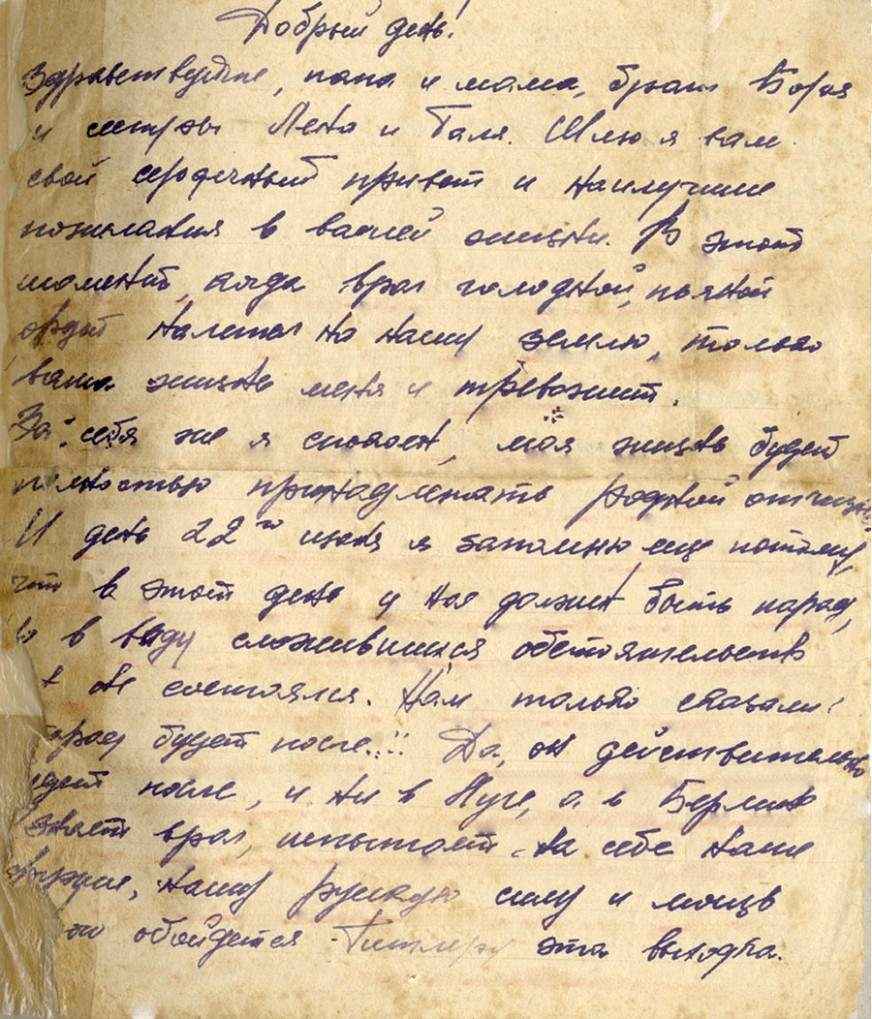 Добрый день!
Здравствуйте, папа и мама, брат Боря
и сестры Лена и Галя. Шлю я вам
свой сердечный привет и наилучшие
пожелания в вашей жизни. В этот
момент, когда враг голодной, пьяной
ордой налетел на нашу землю, только
ваша жизнь меня и тревожит.
За себя же я спокоен, моя жизнь будет
полностью принадлежать родной отчизне.
И день 22го июня я запомню еще потому,
что в этот день у нас должен быть парад,
но в виду сложившихся обстоятельств
не состоялся. Нам только сказали:
парад будет после..!! Да, он действительно
будет после, и не в Луге, а в Берлине
узнает враг, испытает на себе наше
оружие, нашу русскую силу и мощь
обойдется Гитлеру эта выходка.